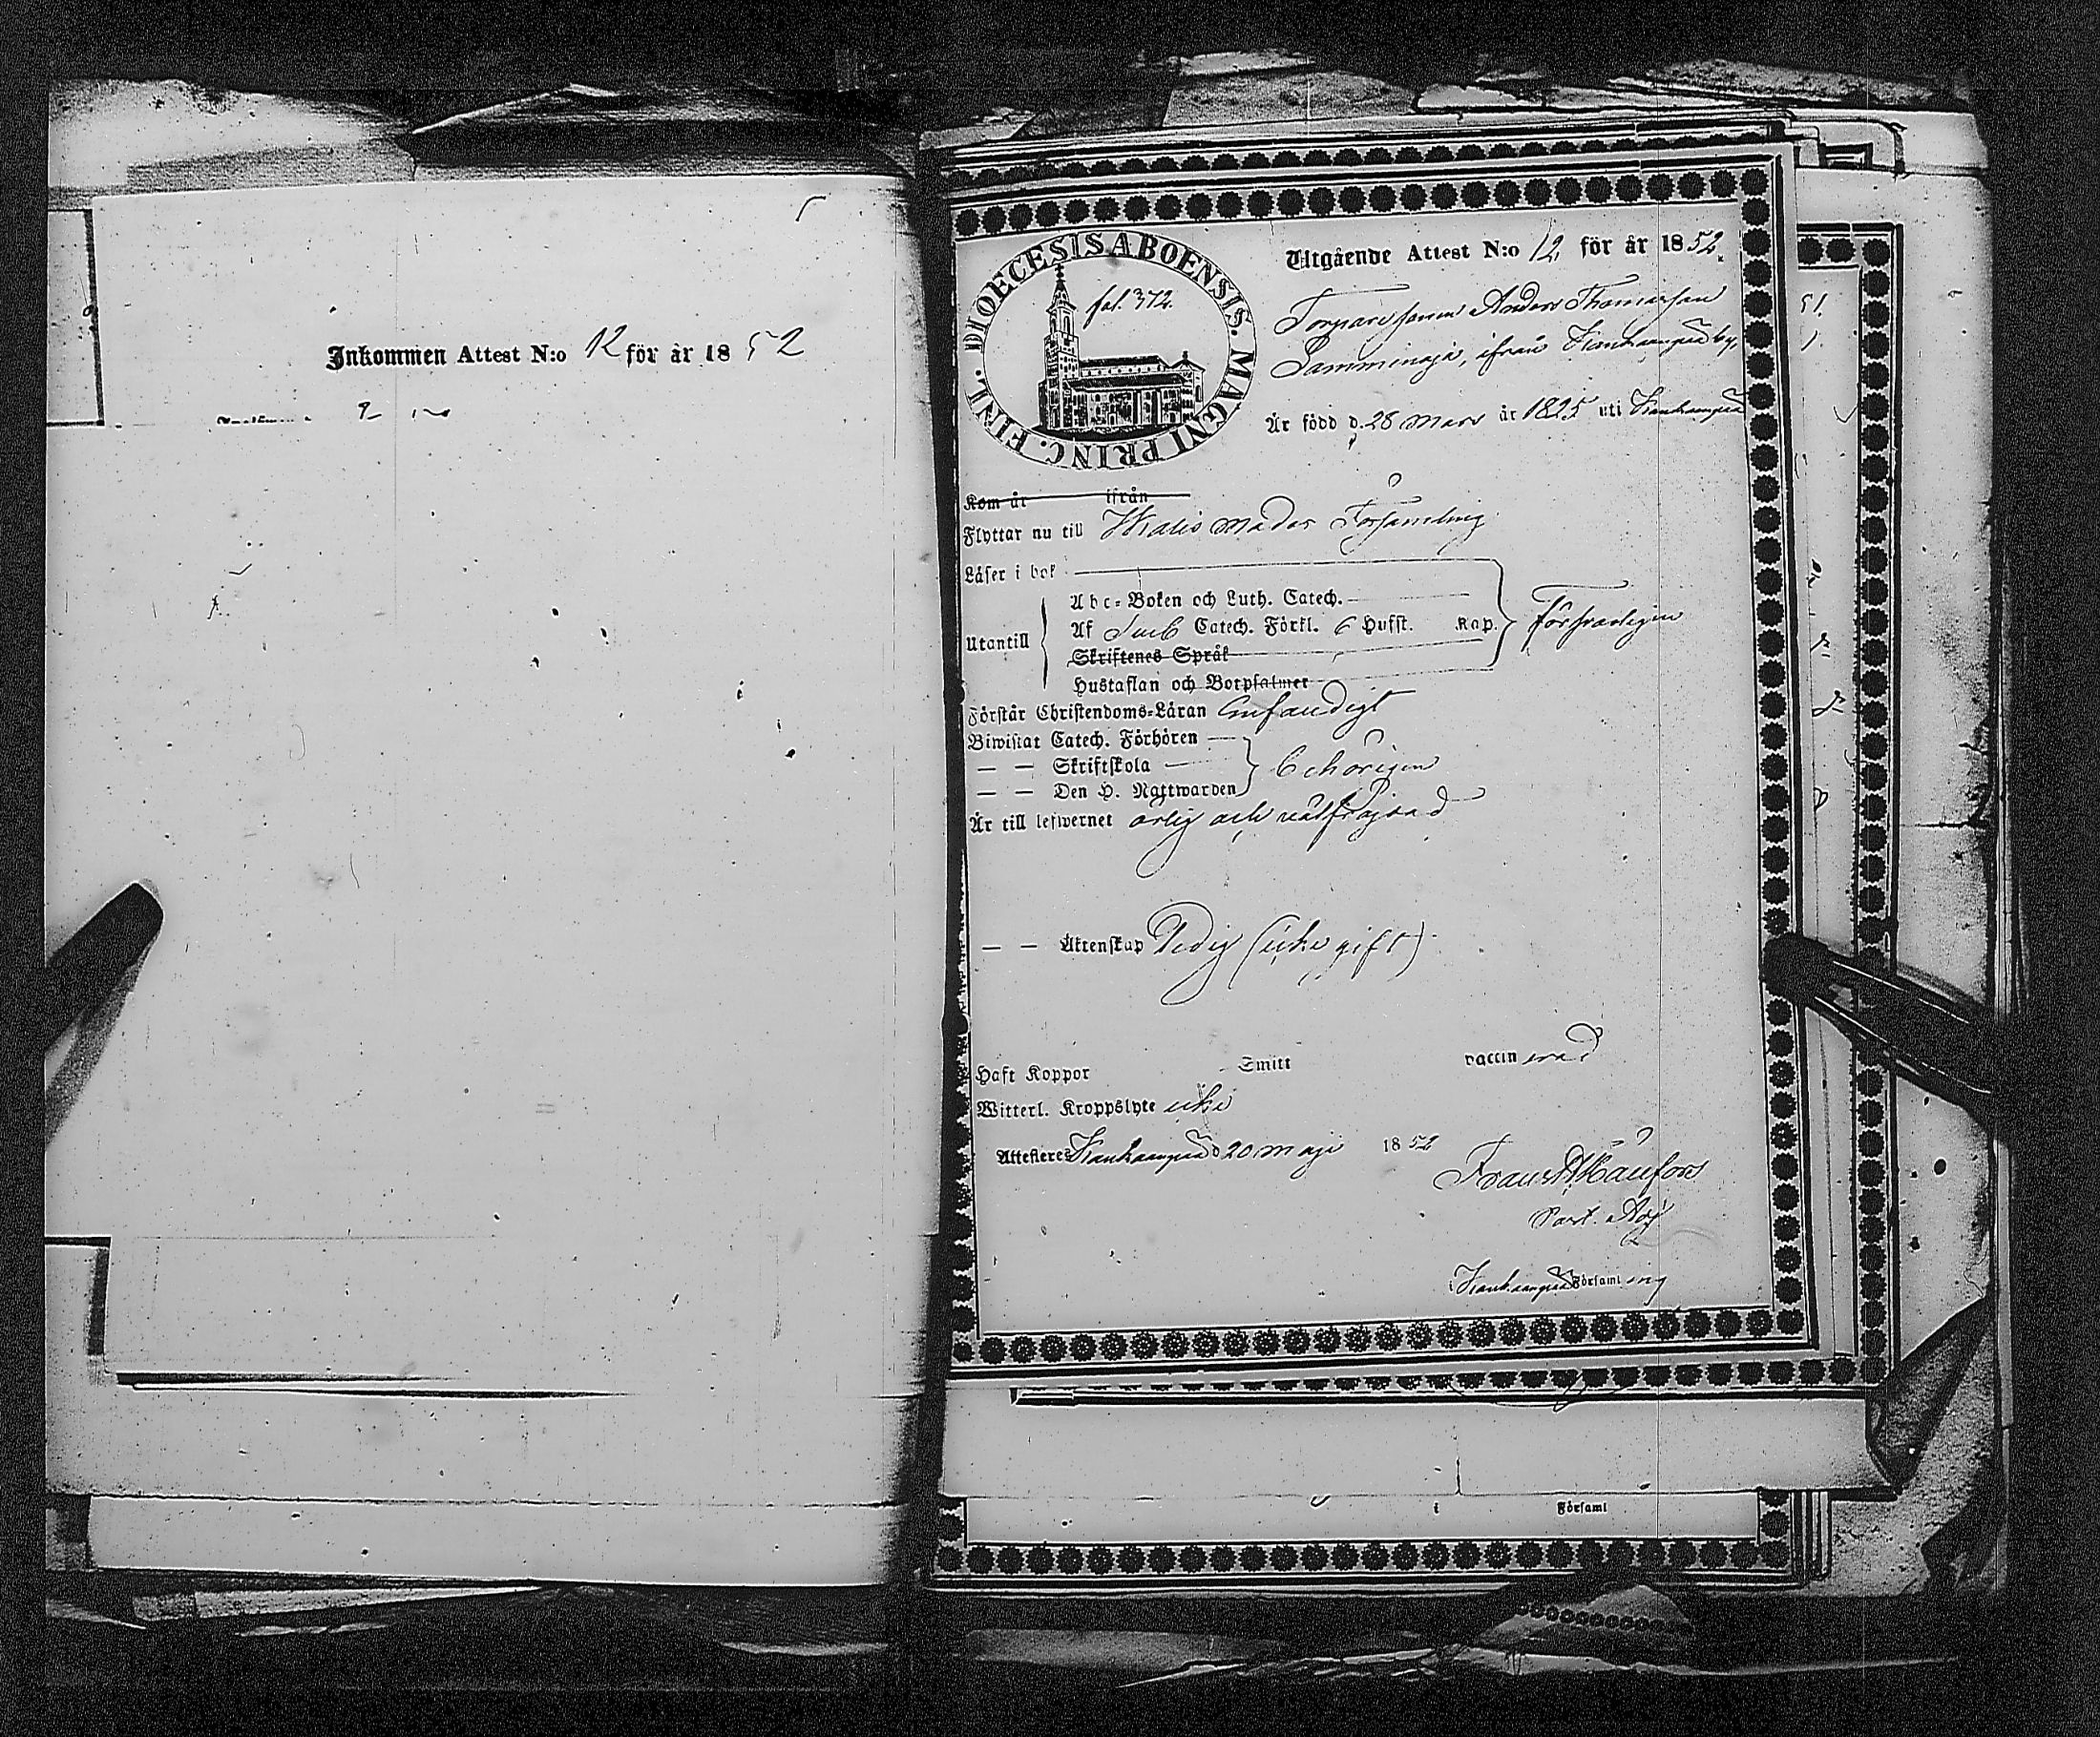 Inkommen Attest N:o 12 för år 1852
DIOECESIS ABOENSIS. MAGNI PRINC. FINL.
fol. 372.
Utgående Attest N:o 12 för år 1852.
Torparesonen Anders Thomasson
Samminaja, ifrån Kankaanpää by,
Är född d. 28 Mars år 1825 uti Kankaanpää
Kom år ifrån
Flyttar nu till Församling
Läser i bok
Utantill
Abc-Boken och Luth. Catech.
Af Catech. Förkl. 6 Hufst. Kap.
försvarligen
Skriftenes Språk
Hustaflan och Botpsalmer
Förstår Christendoms-Läran Enfaldigt
Biwistat Catech. Förhören
— — Skriftskola behörigen
— — Den H. Nattwarden
Är till lefwernet ärlig och välfräjdad
— — Äktenskap Ledig (icke gift)
Haft Koppor Smitt vaccinerad
Witterl. Kroppslyte icke
Attesteres Kankaanpää d 20 Maji 1852
Frans
Past. Adj
i Kankaanpää Församling
i Församl